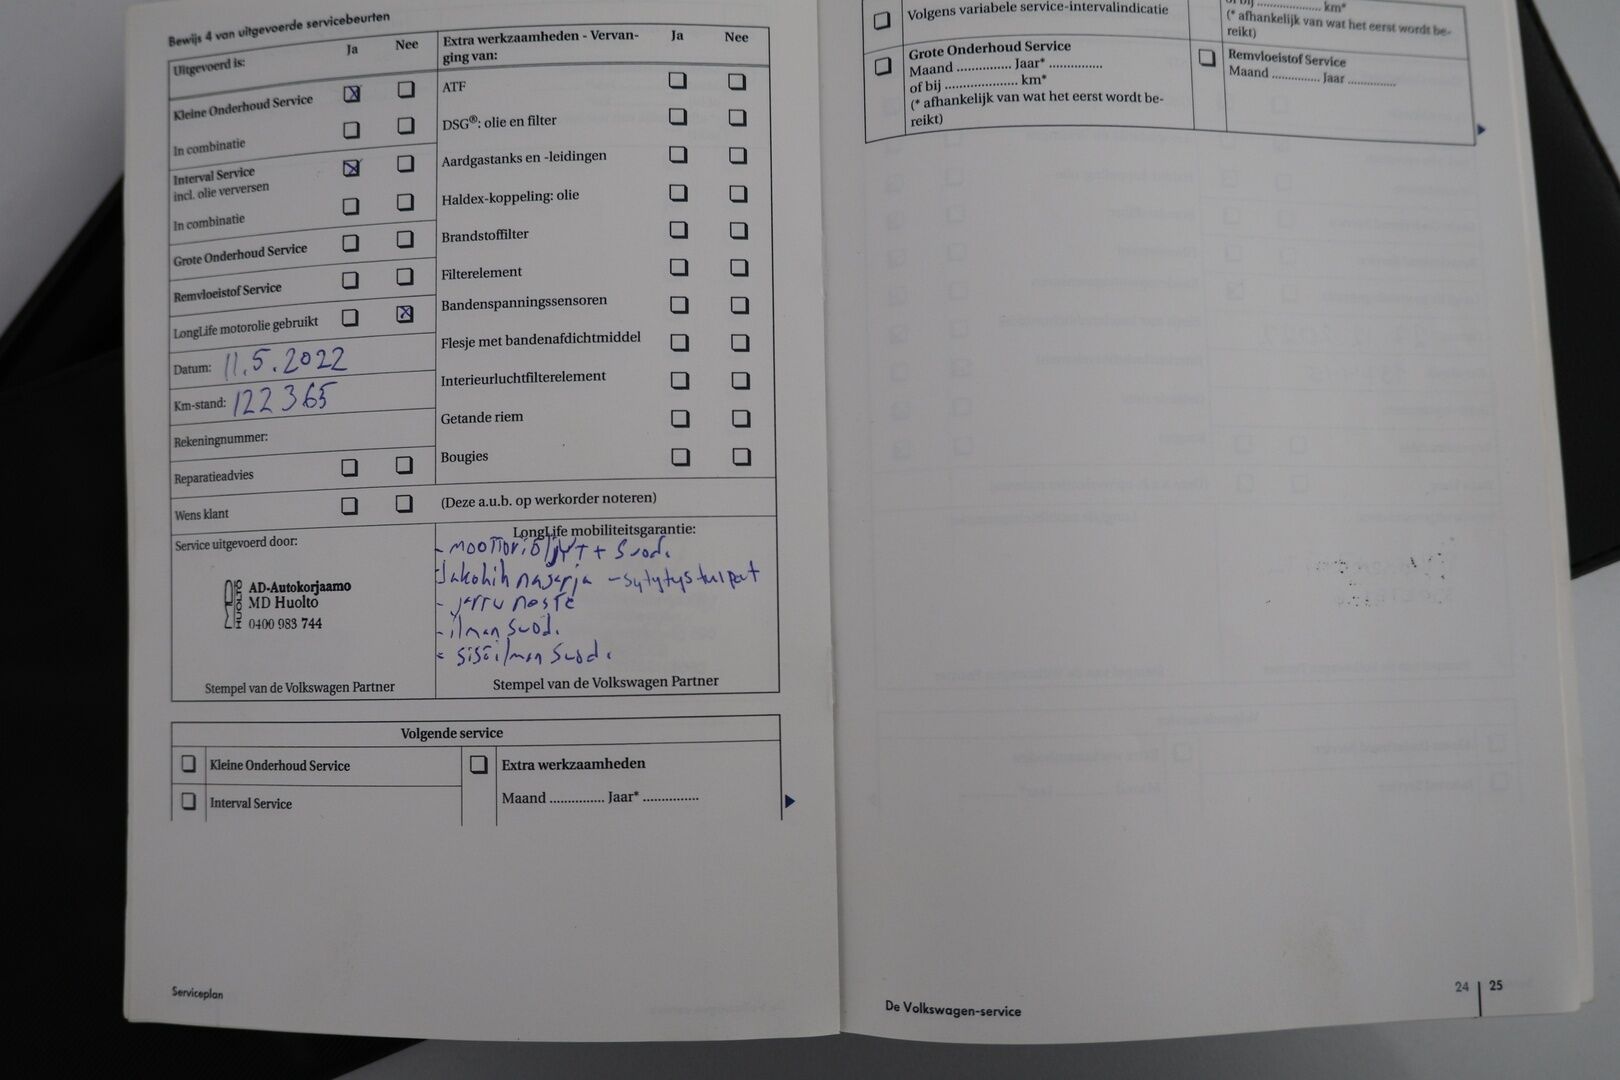 Bewijs 4 van uitgevoerde servicebeurten
Uitgevoerd is: Ja Nee
Kleine Onderhoud Service
In combinatie
Interval Service
incl. olie verversen
In combinatie
Grote Onderhoud Service
Remvloeistof Service
LongLife motorolie gebruikt
Datum: 11.5.2022
Km-stand: 122 365
Rekeningnummer:
Reparatieadvies
Wens klant
Service uitgevoerd door:
HUOLTO
AD-Autokorjaamo
MD Huolto
0400 983 744
Stempel van de Volkswagen Partner
Extra werkzaamheden - Vervan-
ging van: Ja Nee
ATF
DSG®: olie en filter
Aardgastanks en -leidingen
Haldex-koppeling: olie
Brandstoffilter
Filterelement
Bandenspanningssensoren
Flesje met bandenafdichtmiddel
Interieurluchtfilterelement
Getande riem
Bougies
(Deze a.u.b. op werkorder noteren)
LongLife mobiliteitsgarantie:
- moottoriöljyt + suod.
Jakohihnasarja - sytytystulpat
- jarruneste
- ilmansuod.
- sisäilmansuod.
Stempel van de Volkswagen Partner
Volgende service
Kleine Onderhoud Service
Interval Service
Extra werkzaamheden
Maand ............... Jaar* ...............
Serviceplan
Volgens variabele service-intervalindicatie
Grote Onderhoud Service
Maand ............... Jaar* ...............
of bij .................... km*
(* afhankelijk van wat het eerst wordt be-
reikt)
of bij .................... km*
(* afhankelijk van wat het eerst wordt be-
reikt)
Remvloeistof Service
Maand ............... Jaar ...............
De Volkswagen-service
24 25